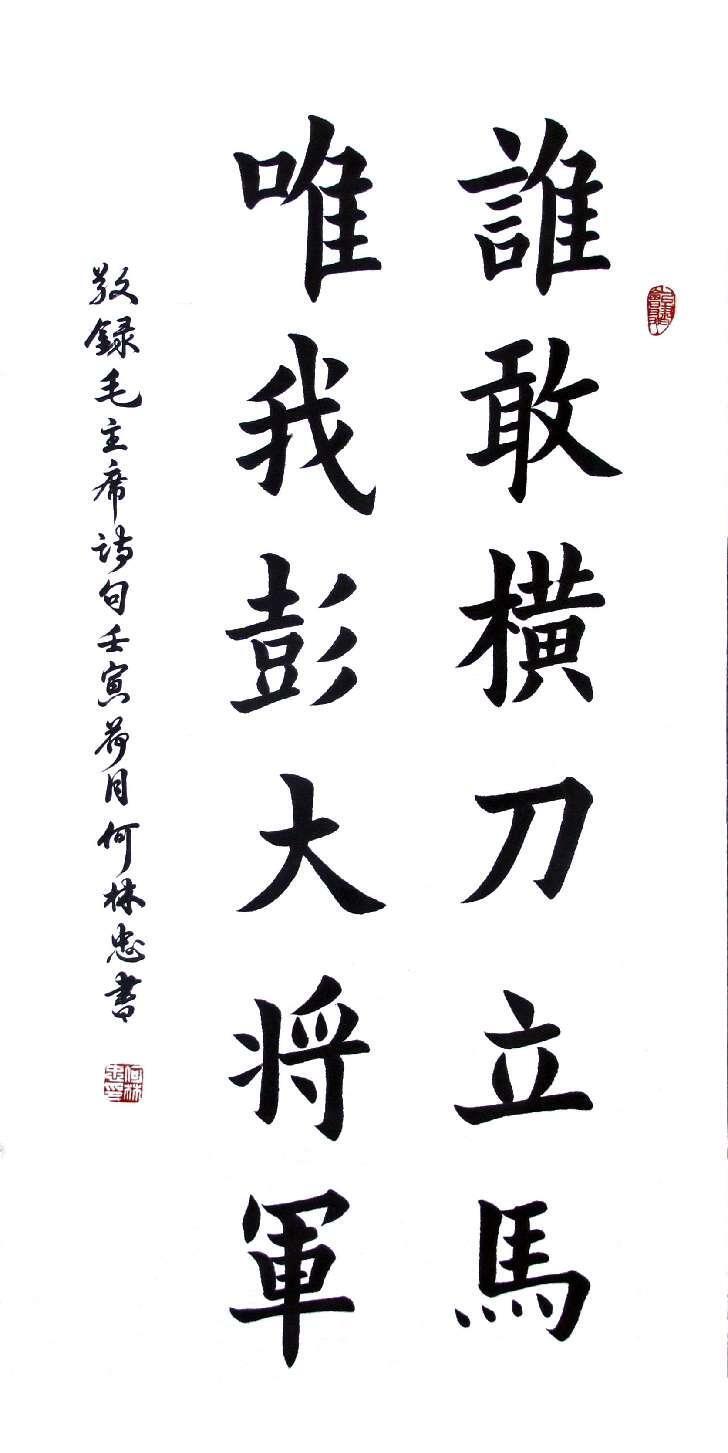 誰敢橫刀立馬
唯我彭大将軍
敬録毛主席詩句壬寅荷月何林忠書